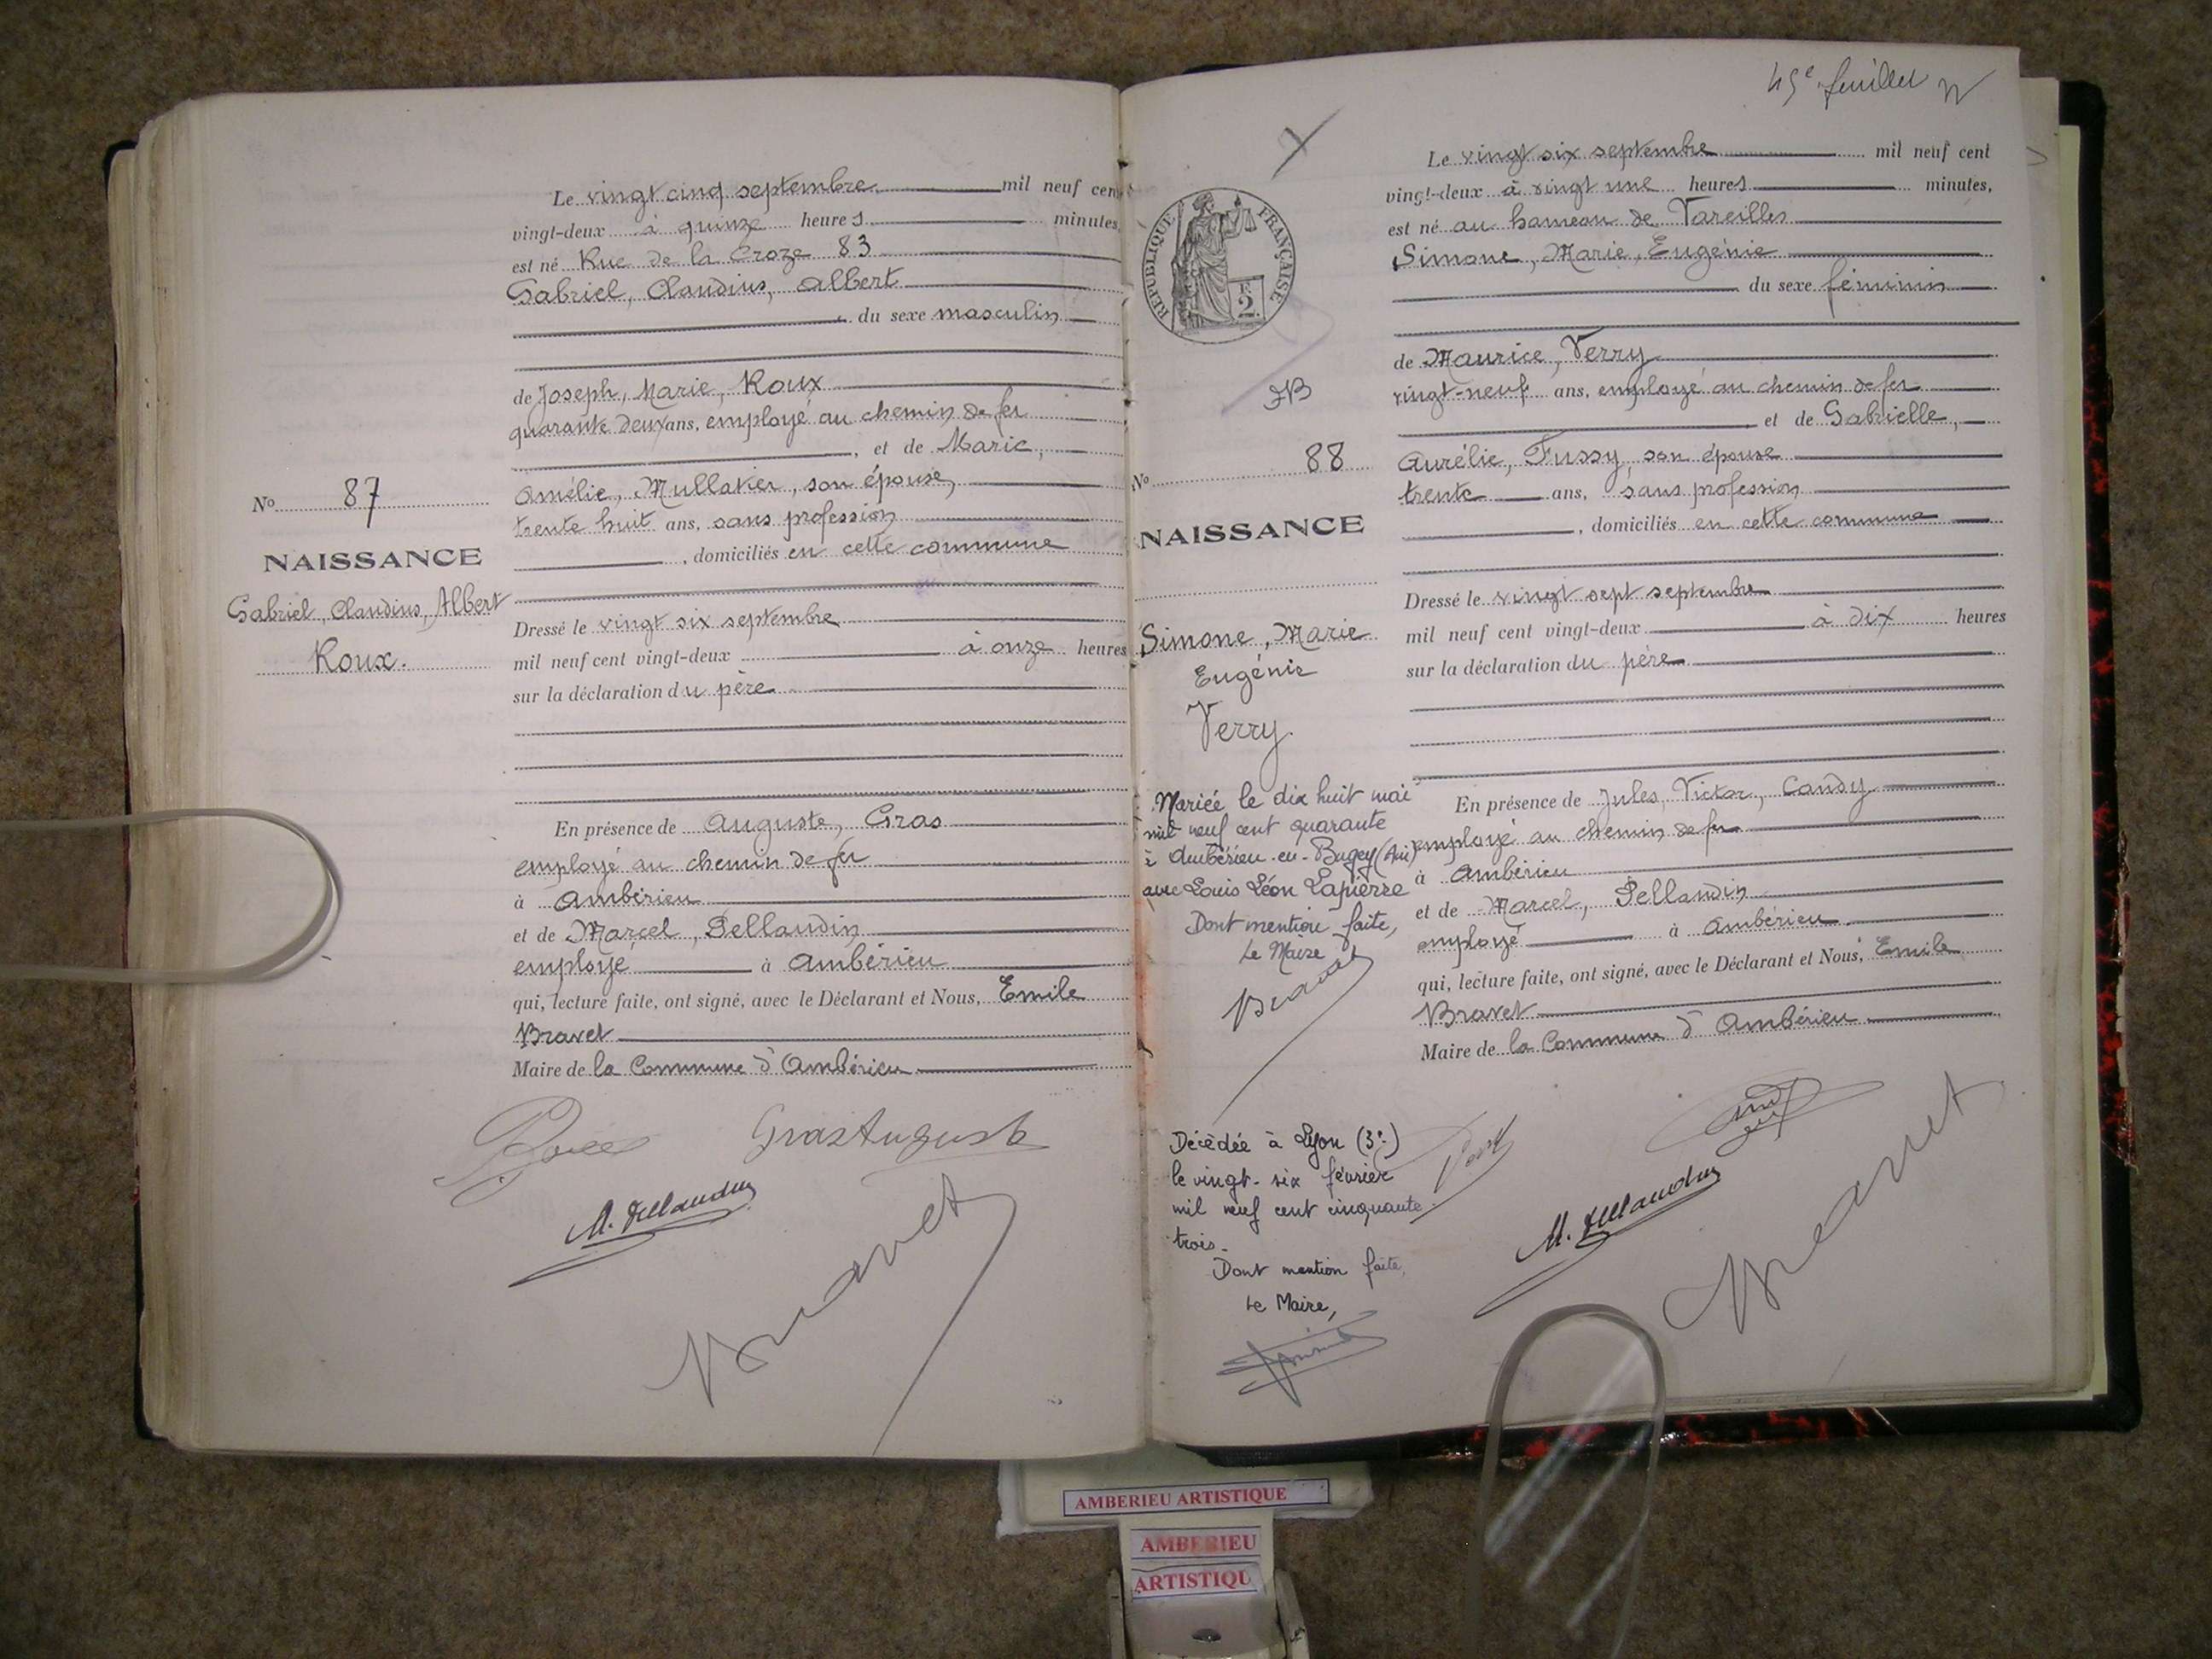 Le vingt cinq septembre mil neuf cent
vingt-deux à quinze heures minutes,
est né Rue de la Croze 83
Gabriel, Claudius, Albert
du sexe masculin
de Joseph, Marie, Roux
quarante deux ans, employé au chemin de fer
, et de Marie,
No 87
Amélie, Mullatier, son épouse,
trente huit ans, sans profession
NAISSANCE
, domiciliés en cette commune
Gabriel, Claudius, Albert
Roux.
Dressé le vingt six septembre
mil neuf cent vingt-deux à onze heures
sur la déclaration du père
En présence de Auguste, Gras
employé au chemin de fer
à Ambérieu
et de Marcel, Pellaudin
employé à Ambérieu
qui, lecture faite, ont signé, avec le Déclarant et Nous, Emile
Bravet
Maire de la Commune d'Ambérieu
Gras Auguste
M. Pellaudin
Bravet
45e feuillet
RÉPUBLIQUE FRANÇAISE
2 F
Le vingt six septembre mil neuf cent
vingt-deux à vingt une heures minutes,
est né au hameau de Vareilles
Simone, Marie, Eugénie
du sexe féminin
de Maurice, Verry
vingt-neuf ans, employé au chemin de fer
et de Gabrielle,
No 88
Aurélie, Fussy, son épouse
trente ans, sans profession
NAISSANCE
, domiciliés en cette commune
Simone, Marie
Eugénie
Verry.
Dressé le vingt sept septembre
mil neuf cent vingt-deux à dix heures
sur la déclaration du père
Mariée le dix huit mai
mil neuf cent quarante
à Ambérieu-en-Bugey (Ain)
avec Louis Léon Lapierre
Dont mention faite,
Le Maire
Bravet
En présence de Jules, Victor, Candy
employé au chemin de fer
à Ambérieu
et de Marcel, Pellaudin
employé à Ambérieu
qui, lecture faite, ont signé, avec le Déclarant et Nous, Emile
Bravet
Maire de la Commune d'Ambérieu
Décédée à Lyon (3e)
le vingt-six février
mil neuf cent cinquante
trois.
Dont mention faite,
Le Maire,
M. Pellaudin
Bravet
AMBERIEU ARTISTIQUE
AMBERIEU
ARTISTIQU